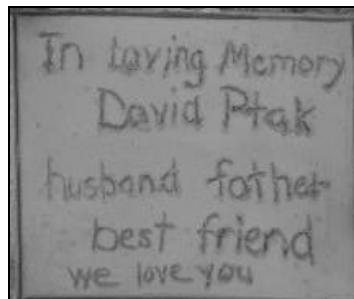 In Loving Memory
David Ptak
husband father
best friend
we love you